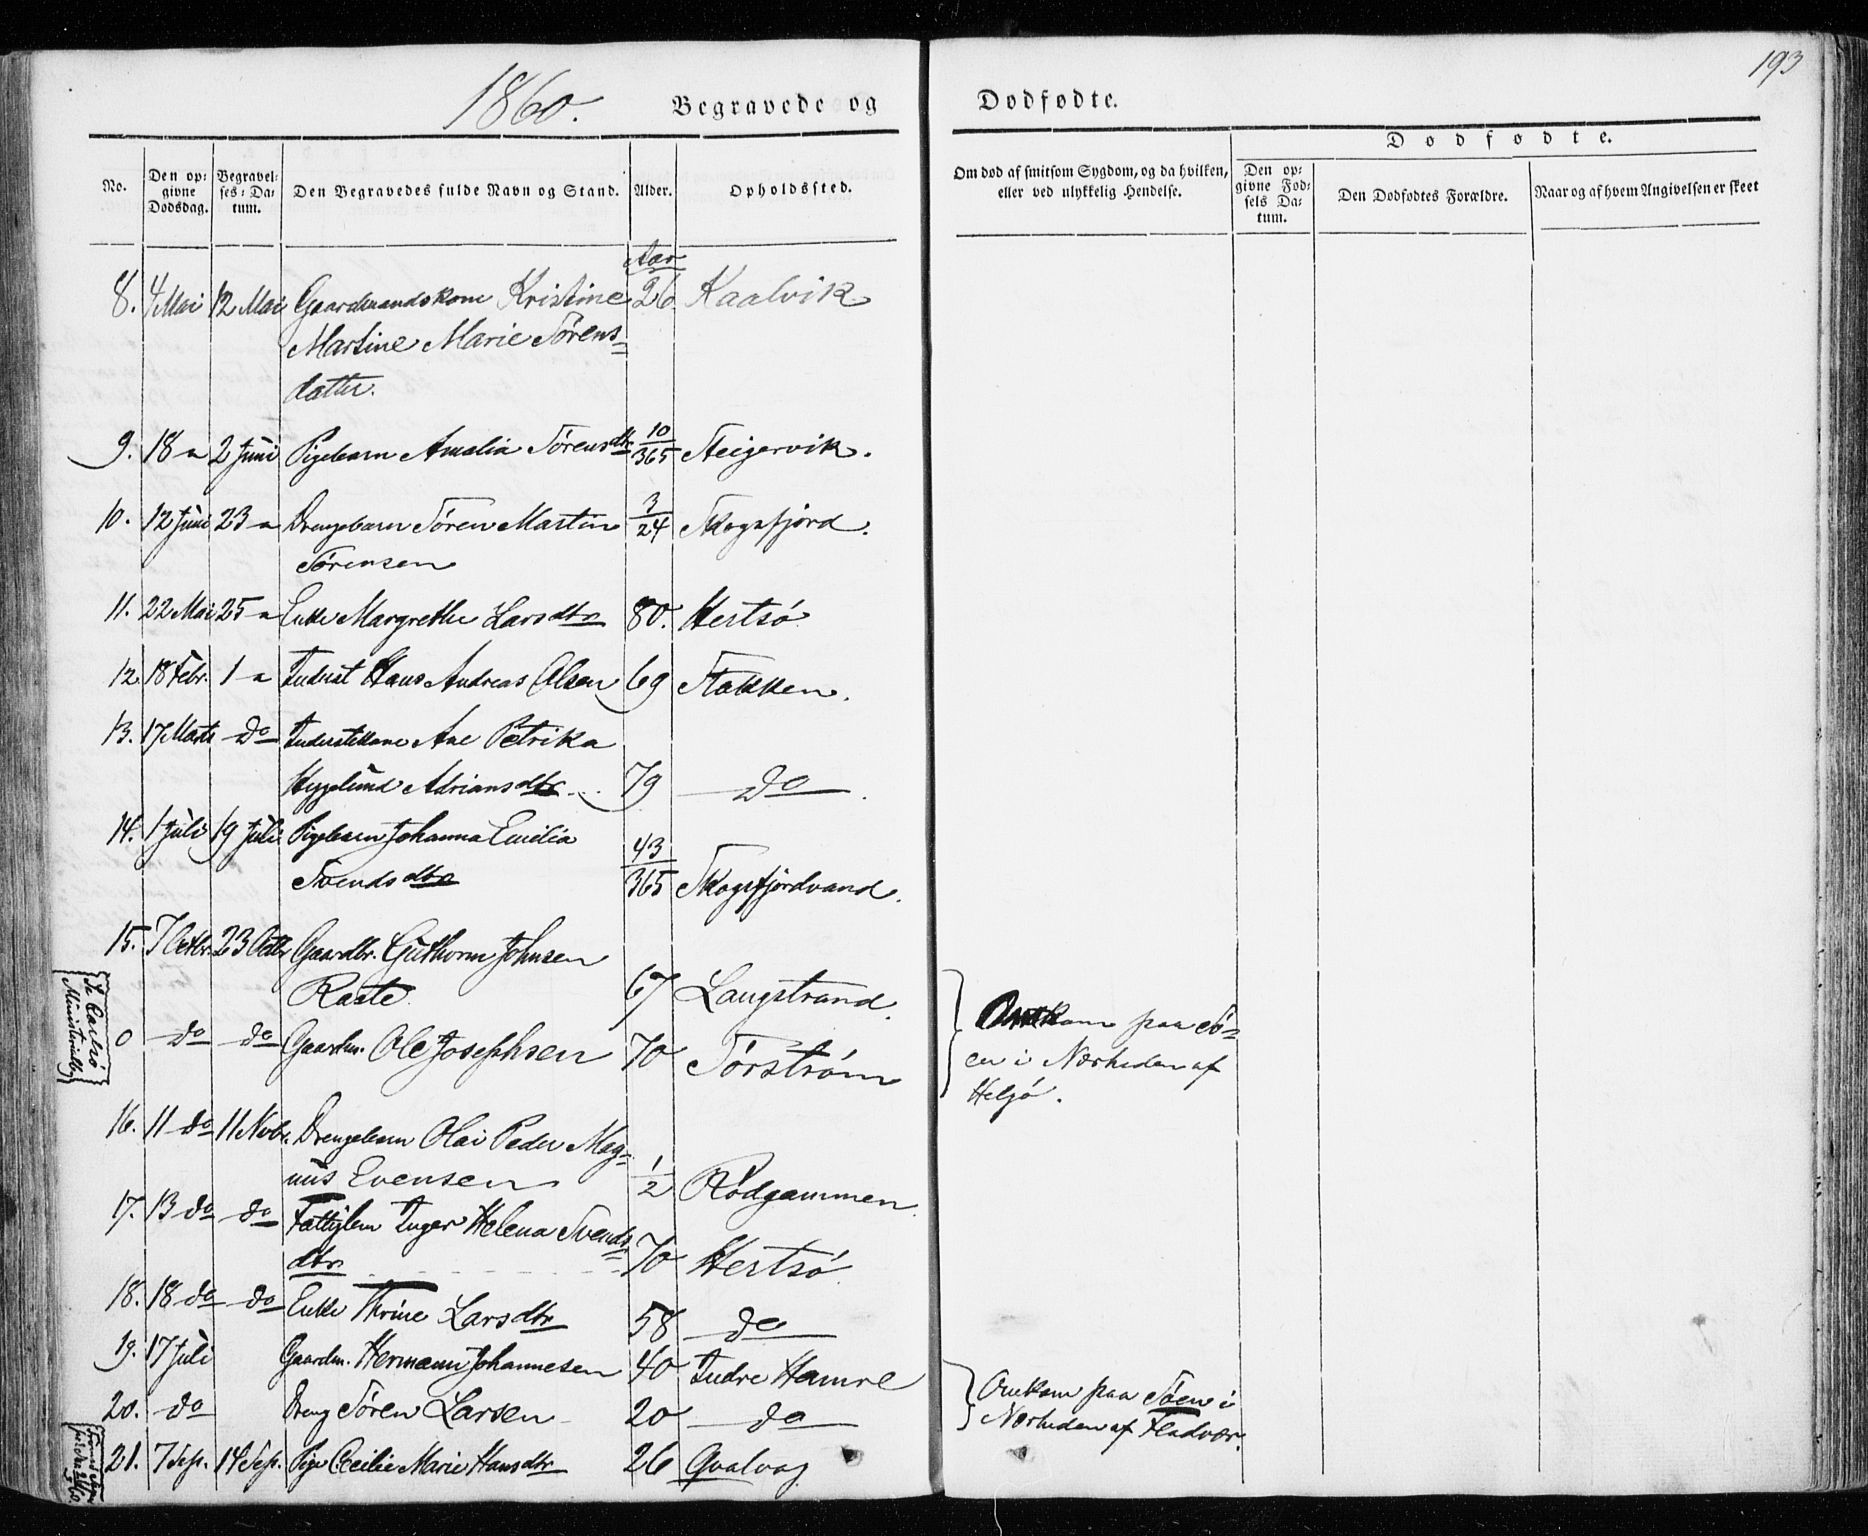 193
1860.
Begravede og
Dødfødte.
No.
Den op-
givne
Dødsdag.
Begravel-
ses-Da-
tum.
Den Begravedes fulde Navn og Stand.
Alder.
Opholdssted.
Om død af smitsom Sygdom, og da hvilken,
eller ved ulykkelig Hendelse.
Dødfødte.
Den op-
givne Fød-
sels Da-
tum.
Den Dødfødtes Forældre.
Naar og af hvem Angivelsen er skeet
Aar
8. 4 Mai 12 Mai Gaardmandskone Kristine 26. Kaalvik
Martine Marie Sørens-
datter.
9. 18 " 2 Juni Pigebarn Amalia Sørensdtr 10/365 Steigervik.
10. 12 Juni 23 " Drengebarn Søren Martin 3/24 Skogsfjord.
Sørensen
11. 22 Mai 25 " Enke Margrethe Larsdtr 80. Hertsø
12. 18 Febr. 1 " Inderst Hans Andreas Olsen 69 Stakken.
13. 17 Marts do Inderstekone Ane Petrika
Hegelund Adriansdtr 79 do
14. 1 Juli 19 Juli Pigebarn Johanna Emilia
Svendsdtr 43/365 Skogsfjordvand.
15. 7 Octbr. 23 Octbr Gaardbr. Guthorm Johnsen
Raste 67 Langstrand.
0 do do Gaardm. Ole Josephsen 70 Sørstrøm
Omkom paa Sø-
en i Nærheden af
Helgø.
16. 11 do 11 Novbr. Drengebarn Olai Peder Mag-
nus Evensen 1/2 Rødgammen.
17. 13 do do Fattiglem Inger Helena Svends-
dtr. 70 Hertsø
18. 18 do do Enke Thrine Larsdtr 58 do
19. 17 Juli Gaardm. Hermann Johannesen 40 Indre Hamre
20. do Dreng Søren Larsen 20 do
Omkom paa Søen i
Nærheden af Fladvær.
21. 7 Sep. 14 Sep. Pige Cecilie Marie Hansdtr 26 Qvalvog